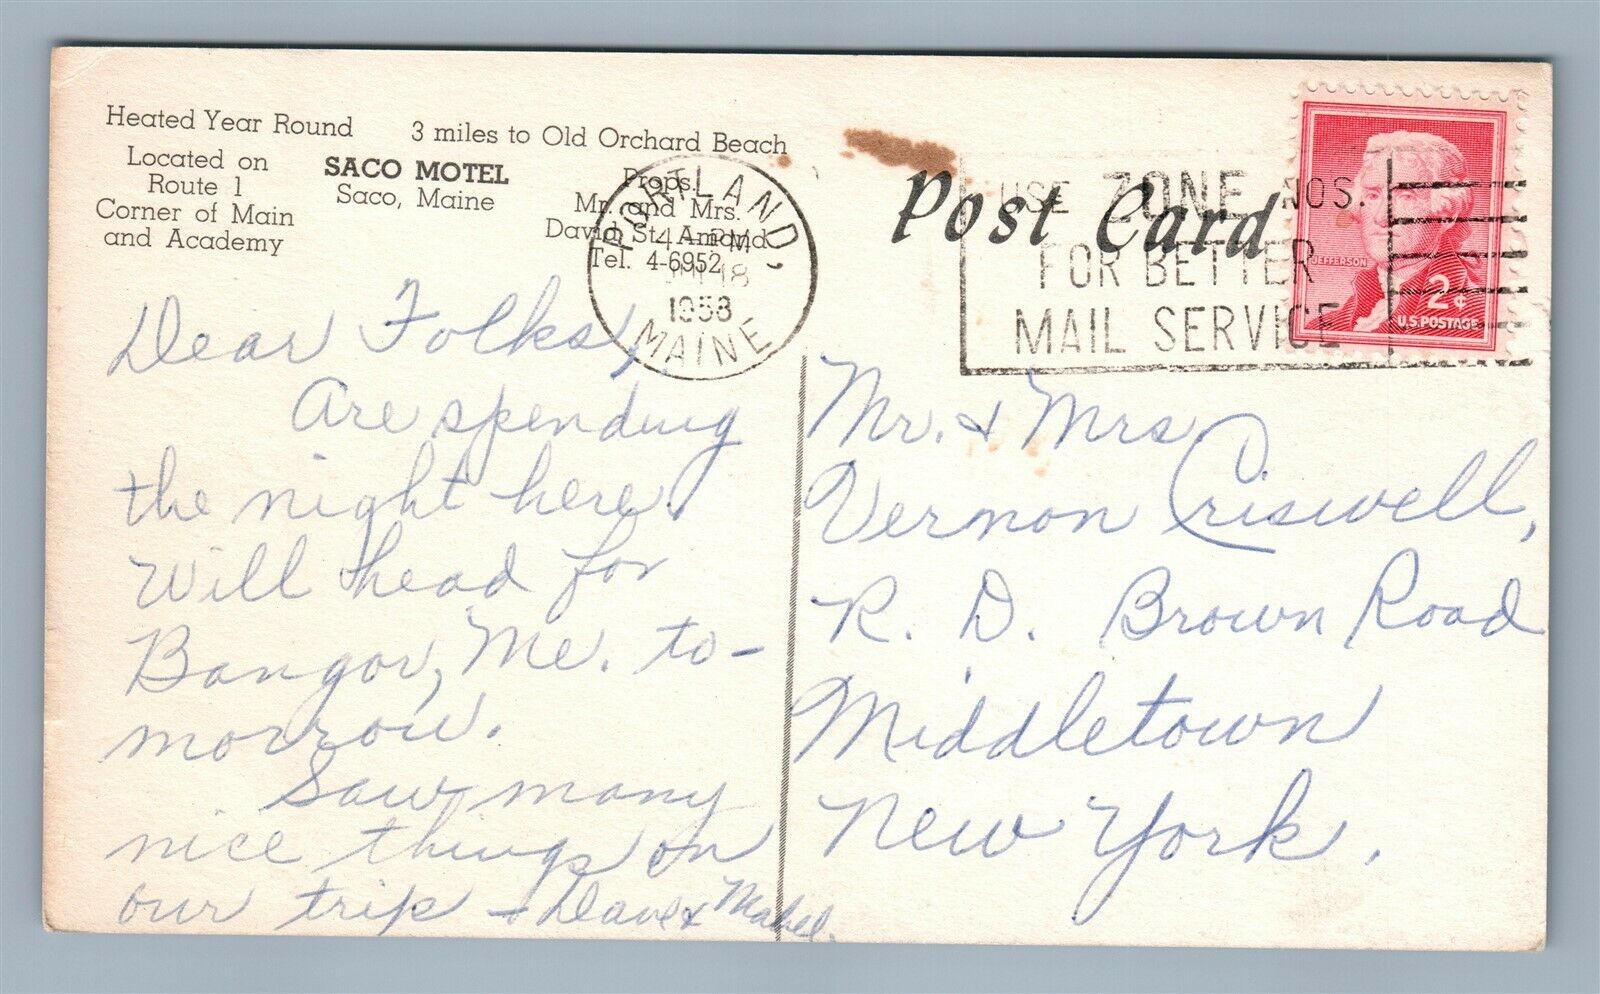 Heated Year Round
3 miles to Old Orchard Beach
Located on
Route 1
Corner of Main
and Academy
SACO MOTEL
Saco, Maine
Props.
Mr. and Mrs.
David St. Amand
Tel. 4-6952
PORTLAND,
4-PM
18
1958
MAINE
Post Card
USE ZONE NOS.
FOR BETTER
MAIL SERVICE
JEFFERSON
2¢
U.S. POSTAGE
Dear Folks,
Are spending
the night here.
Will head for
Bangor, Me. to-
morrow.
Saw many
nice things on
our trip - Dave & Mabel.
Mr. & Mrs
Vernon Criswell,
R. D. Brown Road
Middletown
New York.